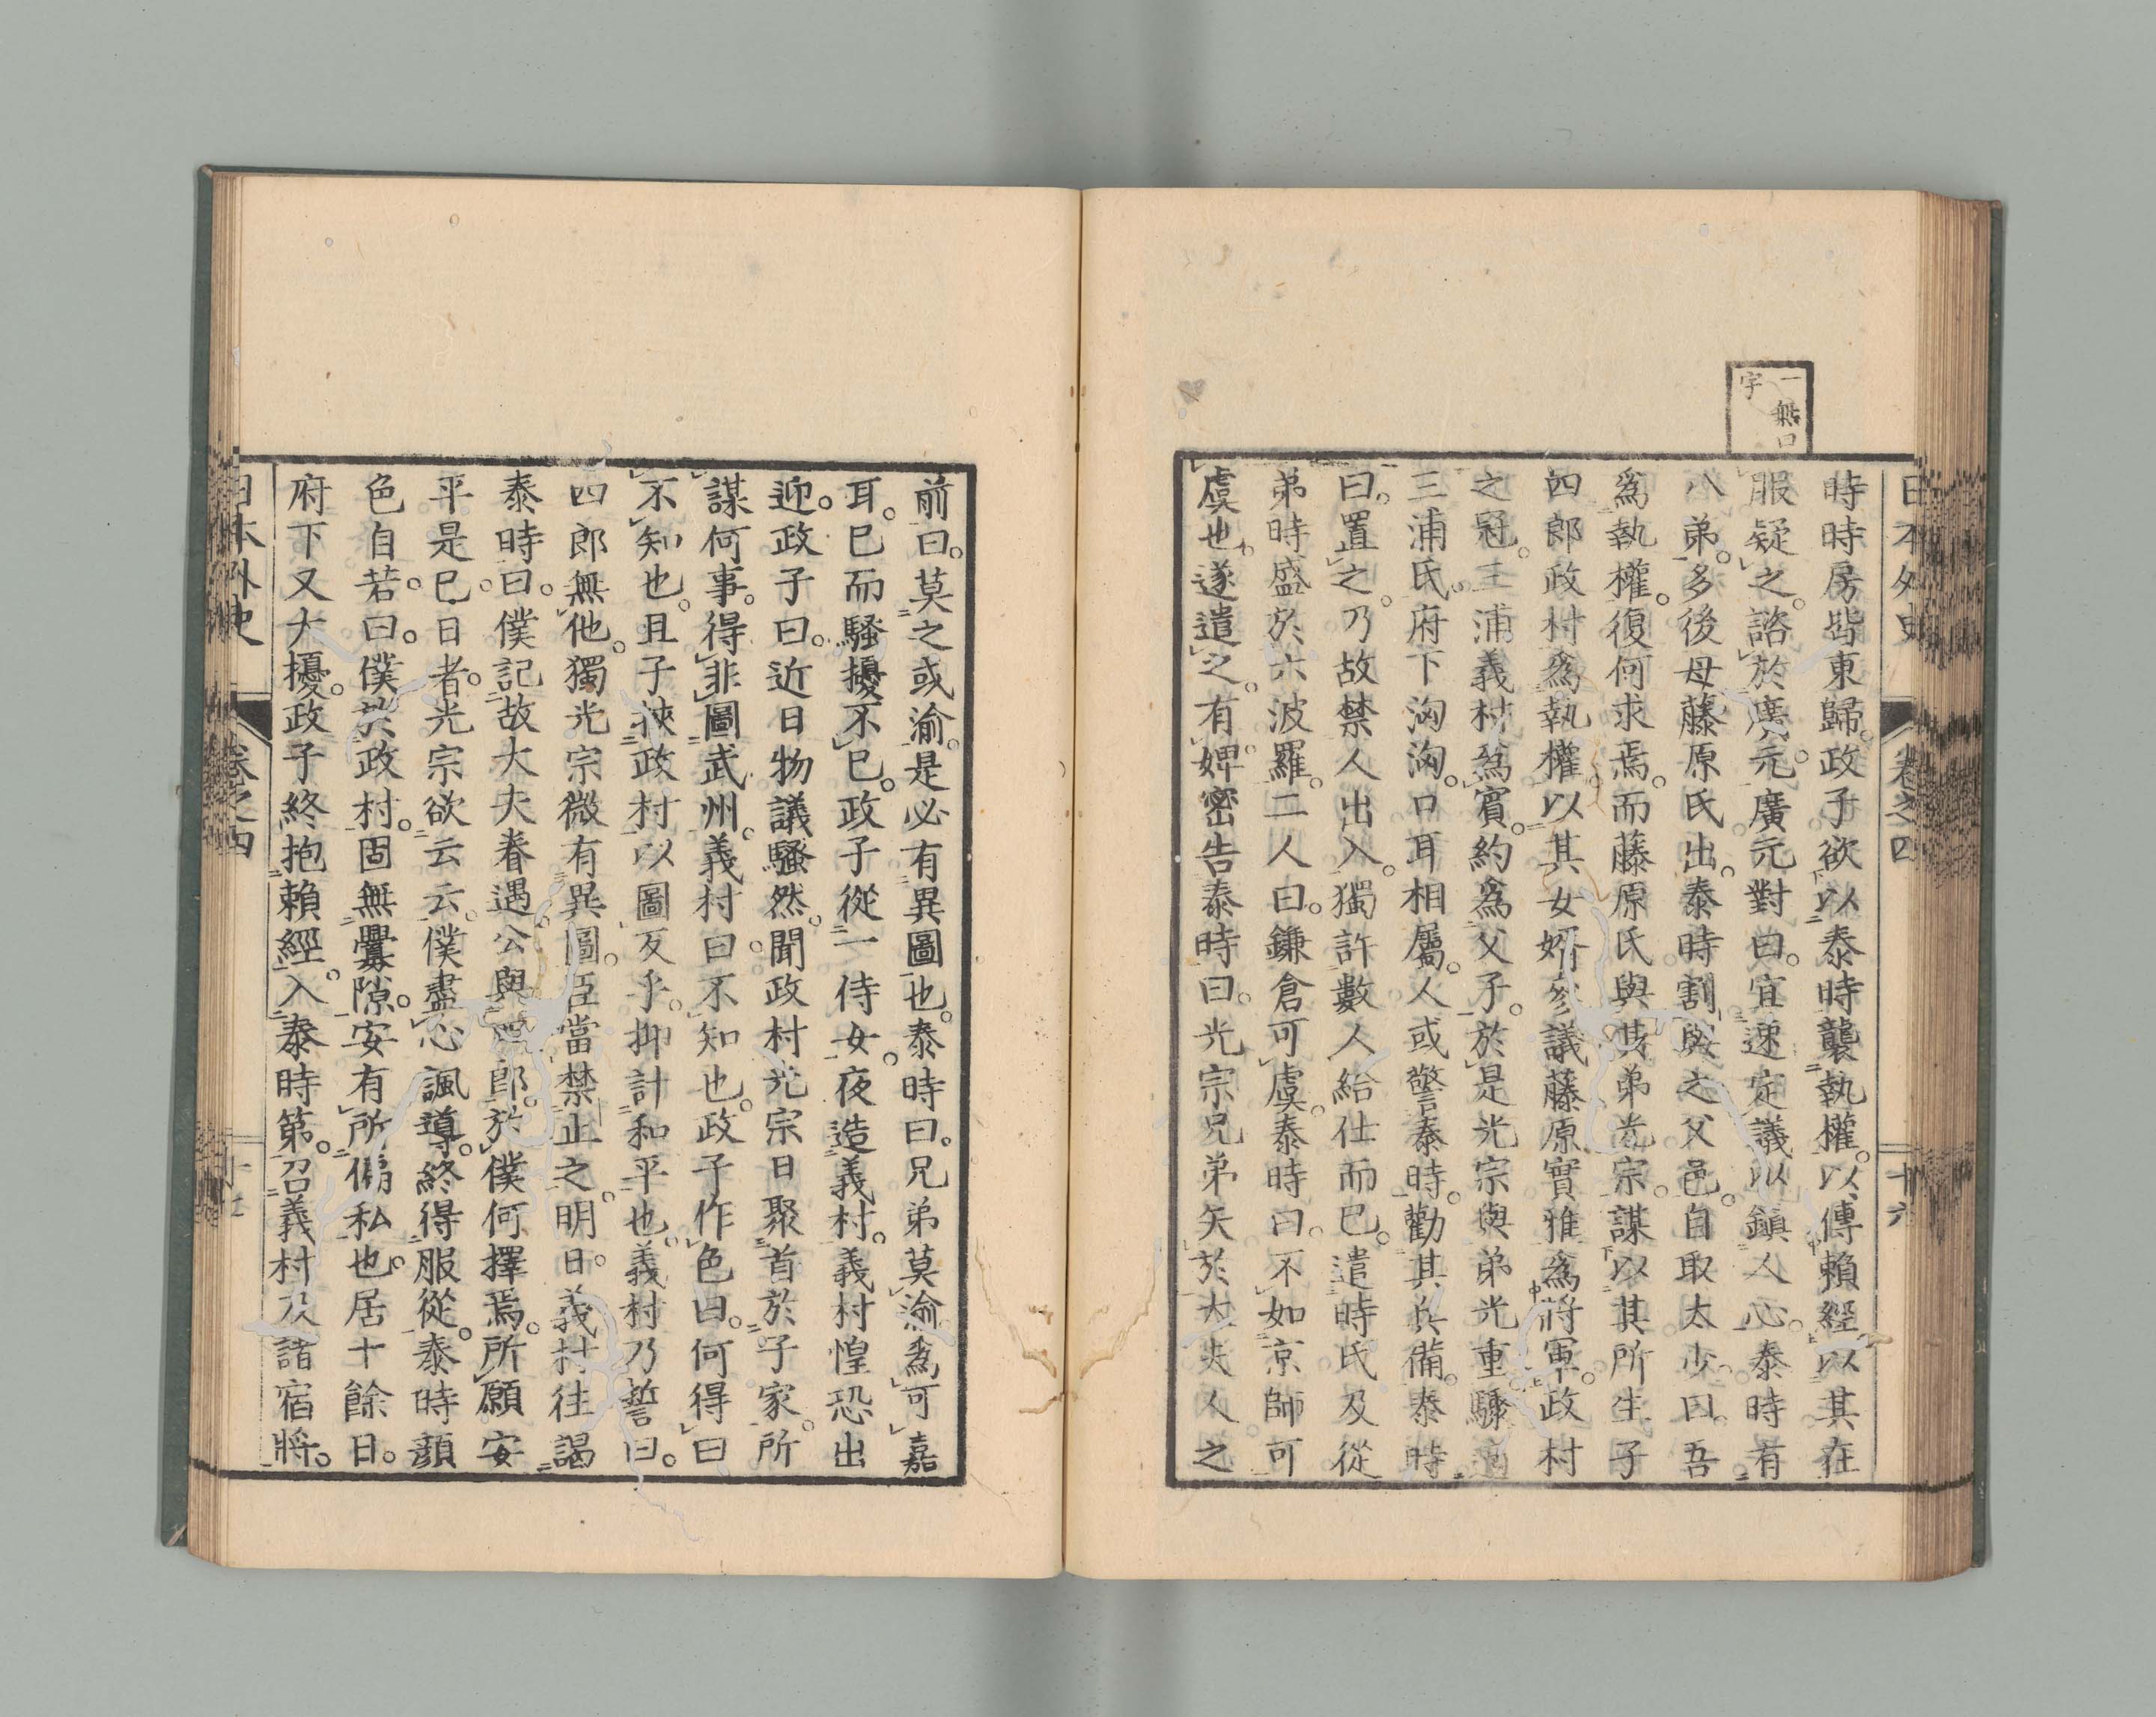 日本外史 卷之四 十六
一無口
字
時時房皆東歸。政子欲以泰時襲執權。以傅賴經。以其在
服疑之。諮於廣元。廣元對曰。宜速定議以鎭人心。泰時有
八弟。多後母藤原氏出。泰時割與之父邑。自取太少。曰。吾
爲執權。復何求焉。而藤原氏與其弟光宗。謀以其所生子
四郎政村爲執權。以其女婿參議藤原實雅爲將軍。政村
之冠。三浦義村爲賓。約爲父子。於是光宗與弟光重驟適
三浦氏。府下洶洶。口耳相屬。人或警泰時。勸其兵備。泰時
曰。置之。乃故禁人出入。獨許數人給仕而已。遣時氏及從
弟時盛於六波羅。二人曰。鎌倉可虞。泰時曰。不如京師可
虞也。遂遣之。有婢密告泰時曰。光宗兄弟矢於大夫人之
前曰。莫之或渝。是必有異圖也。泰時曰。兄弟莫渝爲可嘉
耳。已而騷擾不已。政子從一侍女。夜造義村。義村惶恐出
迎。政子曰。近日物議騷然。聞政村光宗日聚首於子家。所
謀何事。得非圖武州。義村曰不知也。政子作色曰。何得曰
不知也。且子挾政村以圖反乎。抑計和平也。義村乃誓曰。
四郎無他。獨光宗微有異圖。臣當禁止之。明日。義村往謁
泰時曰。僕記故大夫眷遇。公與四郎。於僕何擇焉。所願安
平是已。日者。光宗欲云云。僕盡心諷導。終得服從。泰時顏
色自若。曰。僕於政村。固無釁隙。安有所偏私也。居十餘日。
府下又大擾。政子終抱賴經。入泰時第。召義村及諸宿將。
日本外史 卷之四